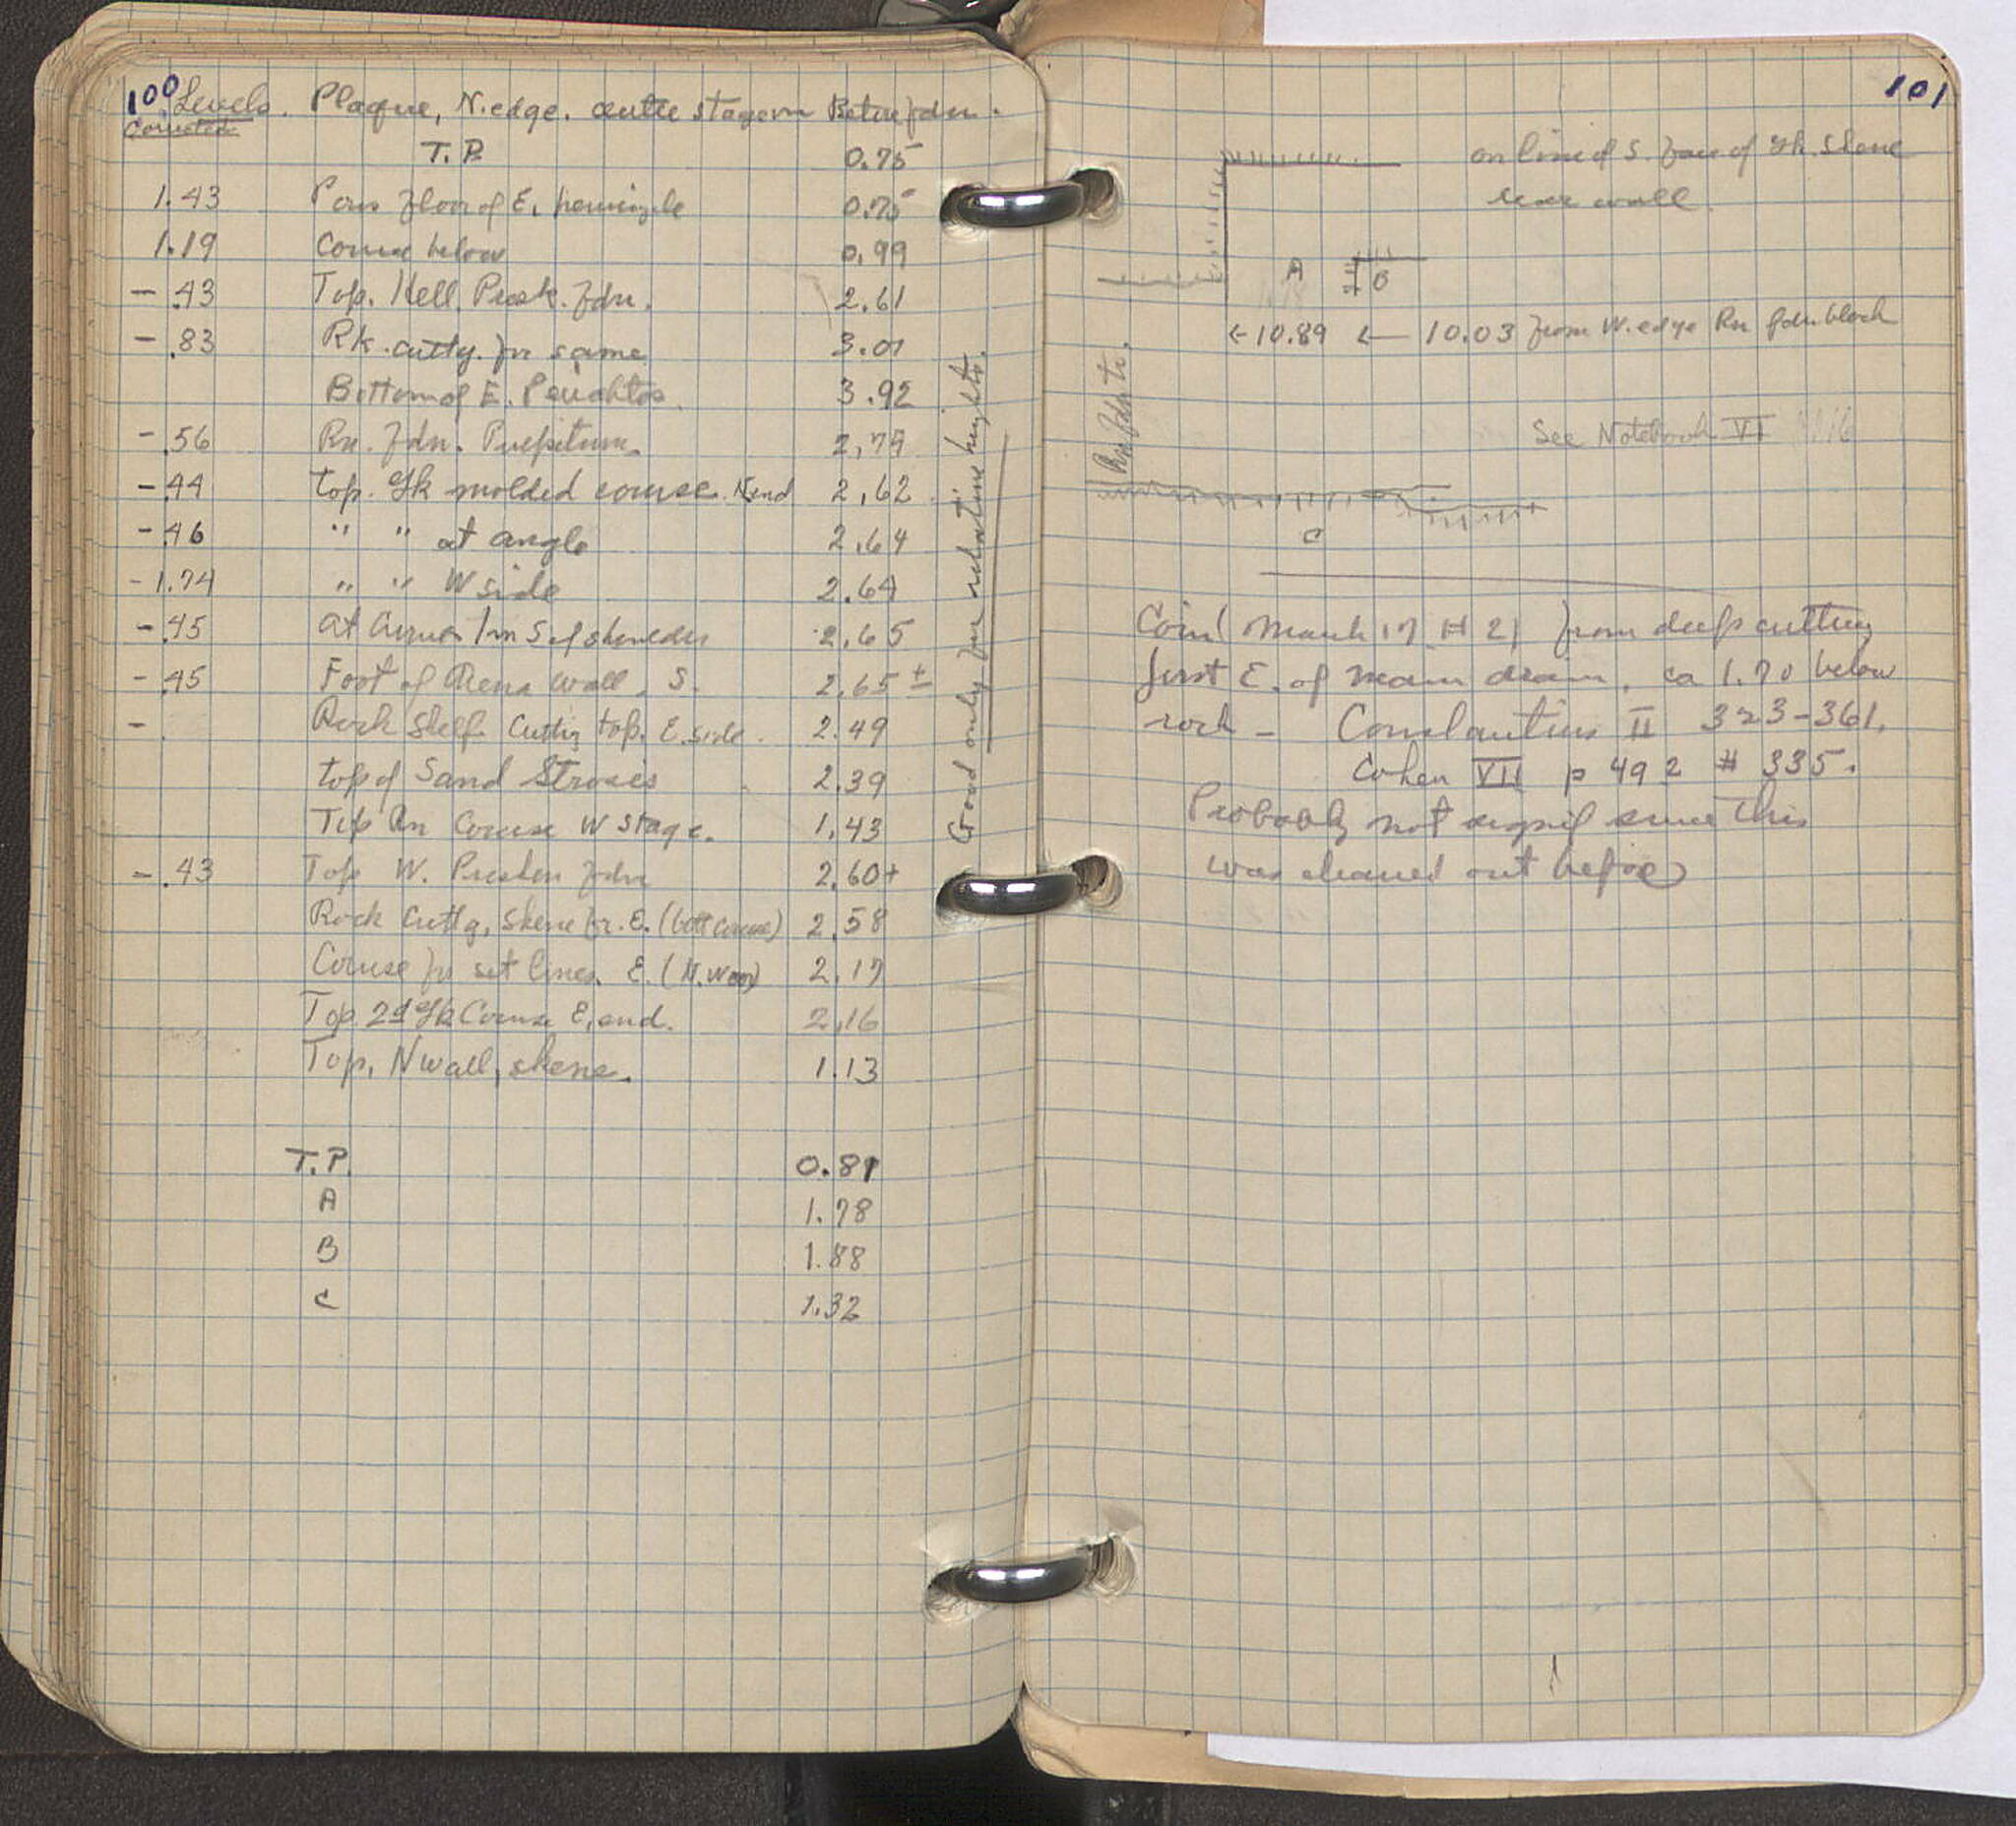 100 Levels. Plaque, N. edge. centre stage on Betw fdn.
Corrected
T.P. 0.75
1.43 Poros floor of E. 0.75
1.19 Course below 0.99
- .43 Top. Hell. Prosk. fdn. 2.61
- .83 Rk. cuttg. for same 3.01
Bottom of E. 3.92
- .56 Rn. fdn. Pulpitum. 2.74
- .44 top. Gk molded course. N end 2.62
- .46 " " at angle 2.64
- 1.74 " " W side 2.64
- .45 at corner 1m S of 2.65
- .45 Foot of Arena wall. S. 2.65 ±
- Rock Shelf. Cuttg top. E. side. 2.49
top of Sand Strosis 2.39
Top Rn Course W stage. 1.43
- .43 Top W. Prosken fdn 2.60+
Rock Cuttg, skene fr. E. (bott course) 2.58
Course for set lines. E. (N. W) 2.17
Top 2d Gk Course E. end. 2.16
Top, N wall, skene. 1.13
T.P. 0.81
A 1.78
B 1.88
C 1.32
Good only for relative heights.
101
on line of S. face of Gk. Skene
rear wall.
A B
← 10.89 ← 10.03 from W. edge Rn fdn block
Rn fdn
See Notebook VI
C
Coin (March 17 # 2) from deep cutting
first E. of main drain, ca 1.70 below
rock - Constantius II 323-361.
Cohen VII p 492 # 335.
Probably not signif since this
was cleaned out before